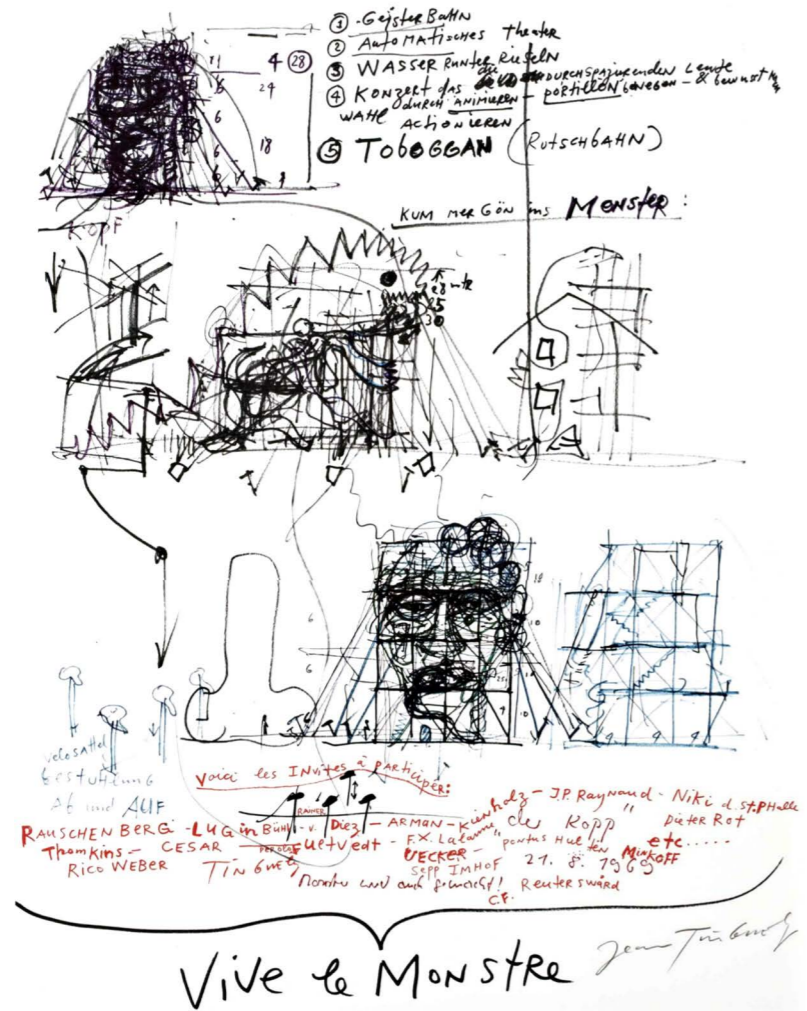 ① -GeisterBahn
② AutoMATisches Theater
③ WASSER Runter Rieseln
4 ㉘
④ KONZERT das die DURCHSPAZIERENDEN Leute
WAHL durch ANIMIEREN - PORTILLON bewegen - & bewusst
ACTIONIEREN
⑤ ToboGGAN (RutschbAHN)
24
6
18
KopF
KUM MER GÖN ins MONSTER :
25
30
6
6
18
10
10
velosattel
Bestuhlung
Ab und AUF
Voici les INVITES à PARTICIPER:
RAUSCHENBERG - LUGinBühl - v. Diez - ARMAN - Kienholz - J.P. Raynaud - Niki d. St. PHalle
RAINER
Thomkins - CESAR - PER OLOF Ultvedt - F.X. Lalanne " der Kopp " Dieter Rot
Rico WEBER TINGuely UECKER - pontus Hulten MINKOFF etc.....
SEPP IMHOF 21. 8. 1969
Monster und auch gemacht! Reuterswärd
C.F.
Jean Tinguely
ViVe le MONSTRE